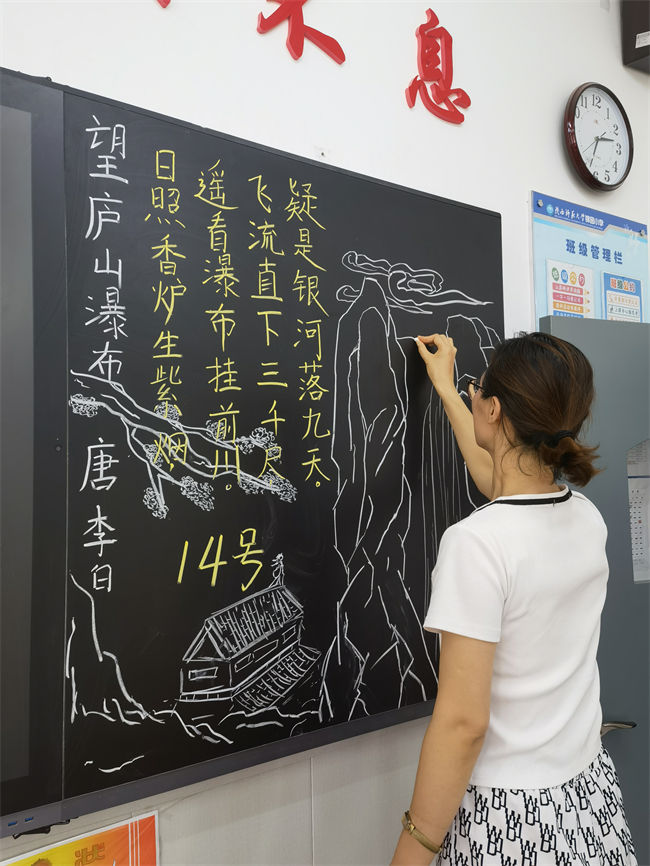 息
望庐山瀑布 唐 李白
日照香炉生紫烟，
遥看瀑布挂前川。
飞流直下三千尺，
疑是银河落九天。
14号
班级管理栏
状